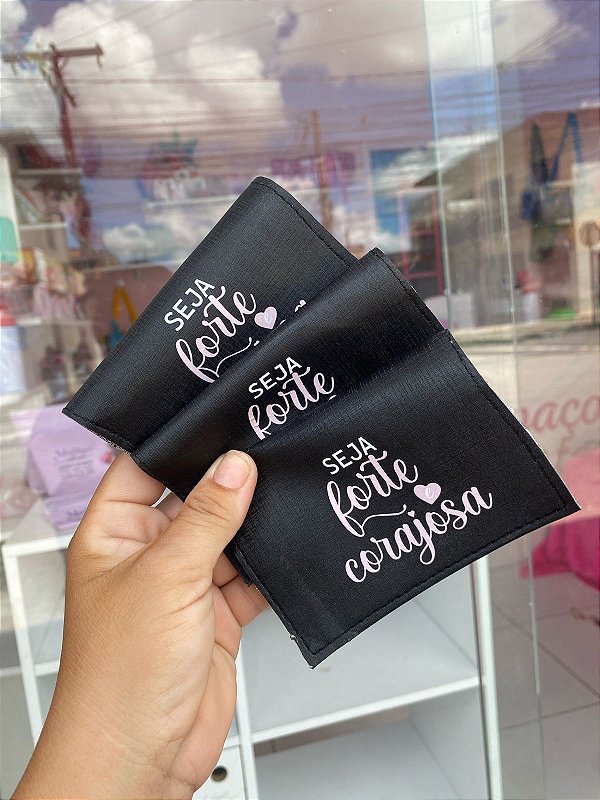 SEJA
forte
SEJA
forte
SEJA
forte
e
corajosa